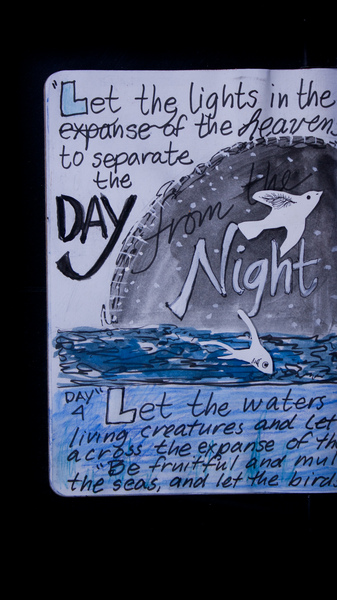 "Let the lights in the
expanse of the heaven
to separate
the
DAY
from the
Night
DAY
4
"Let the waters
living creatures and let
across the expanse of th
"Be fruitful and mul
the seas, and let the birds